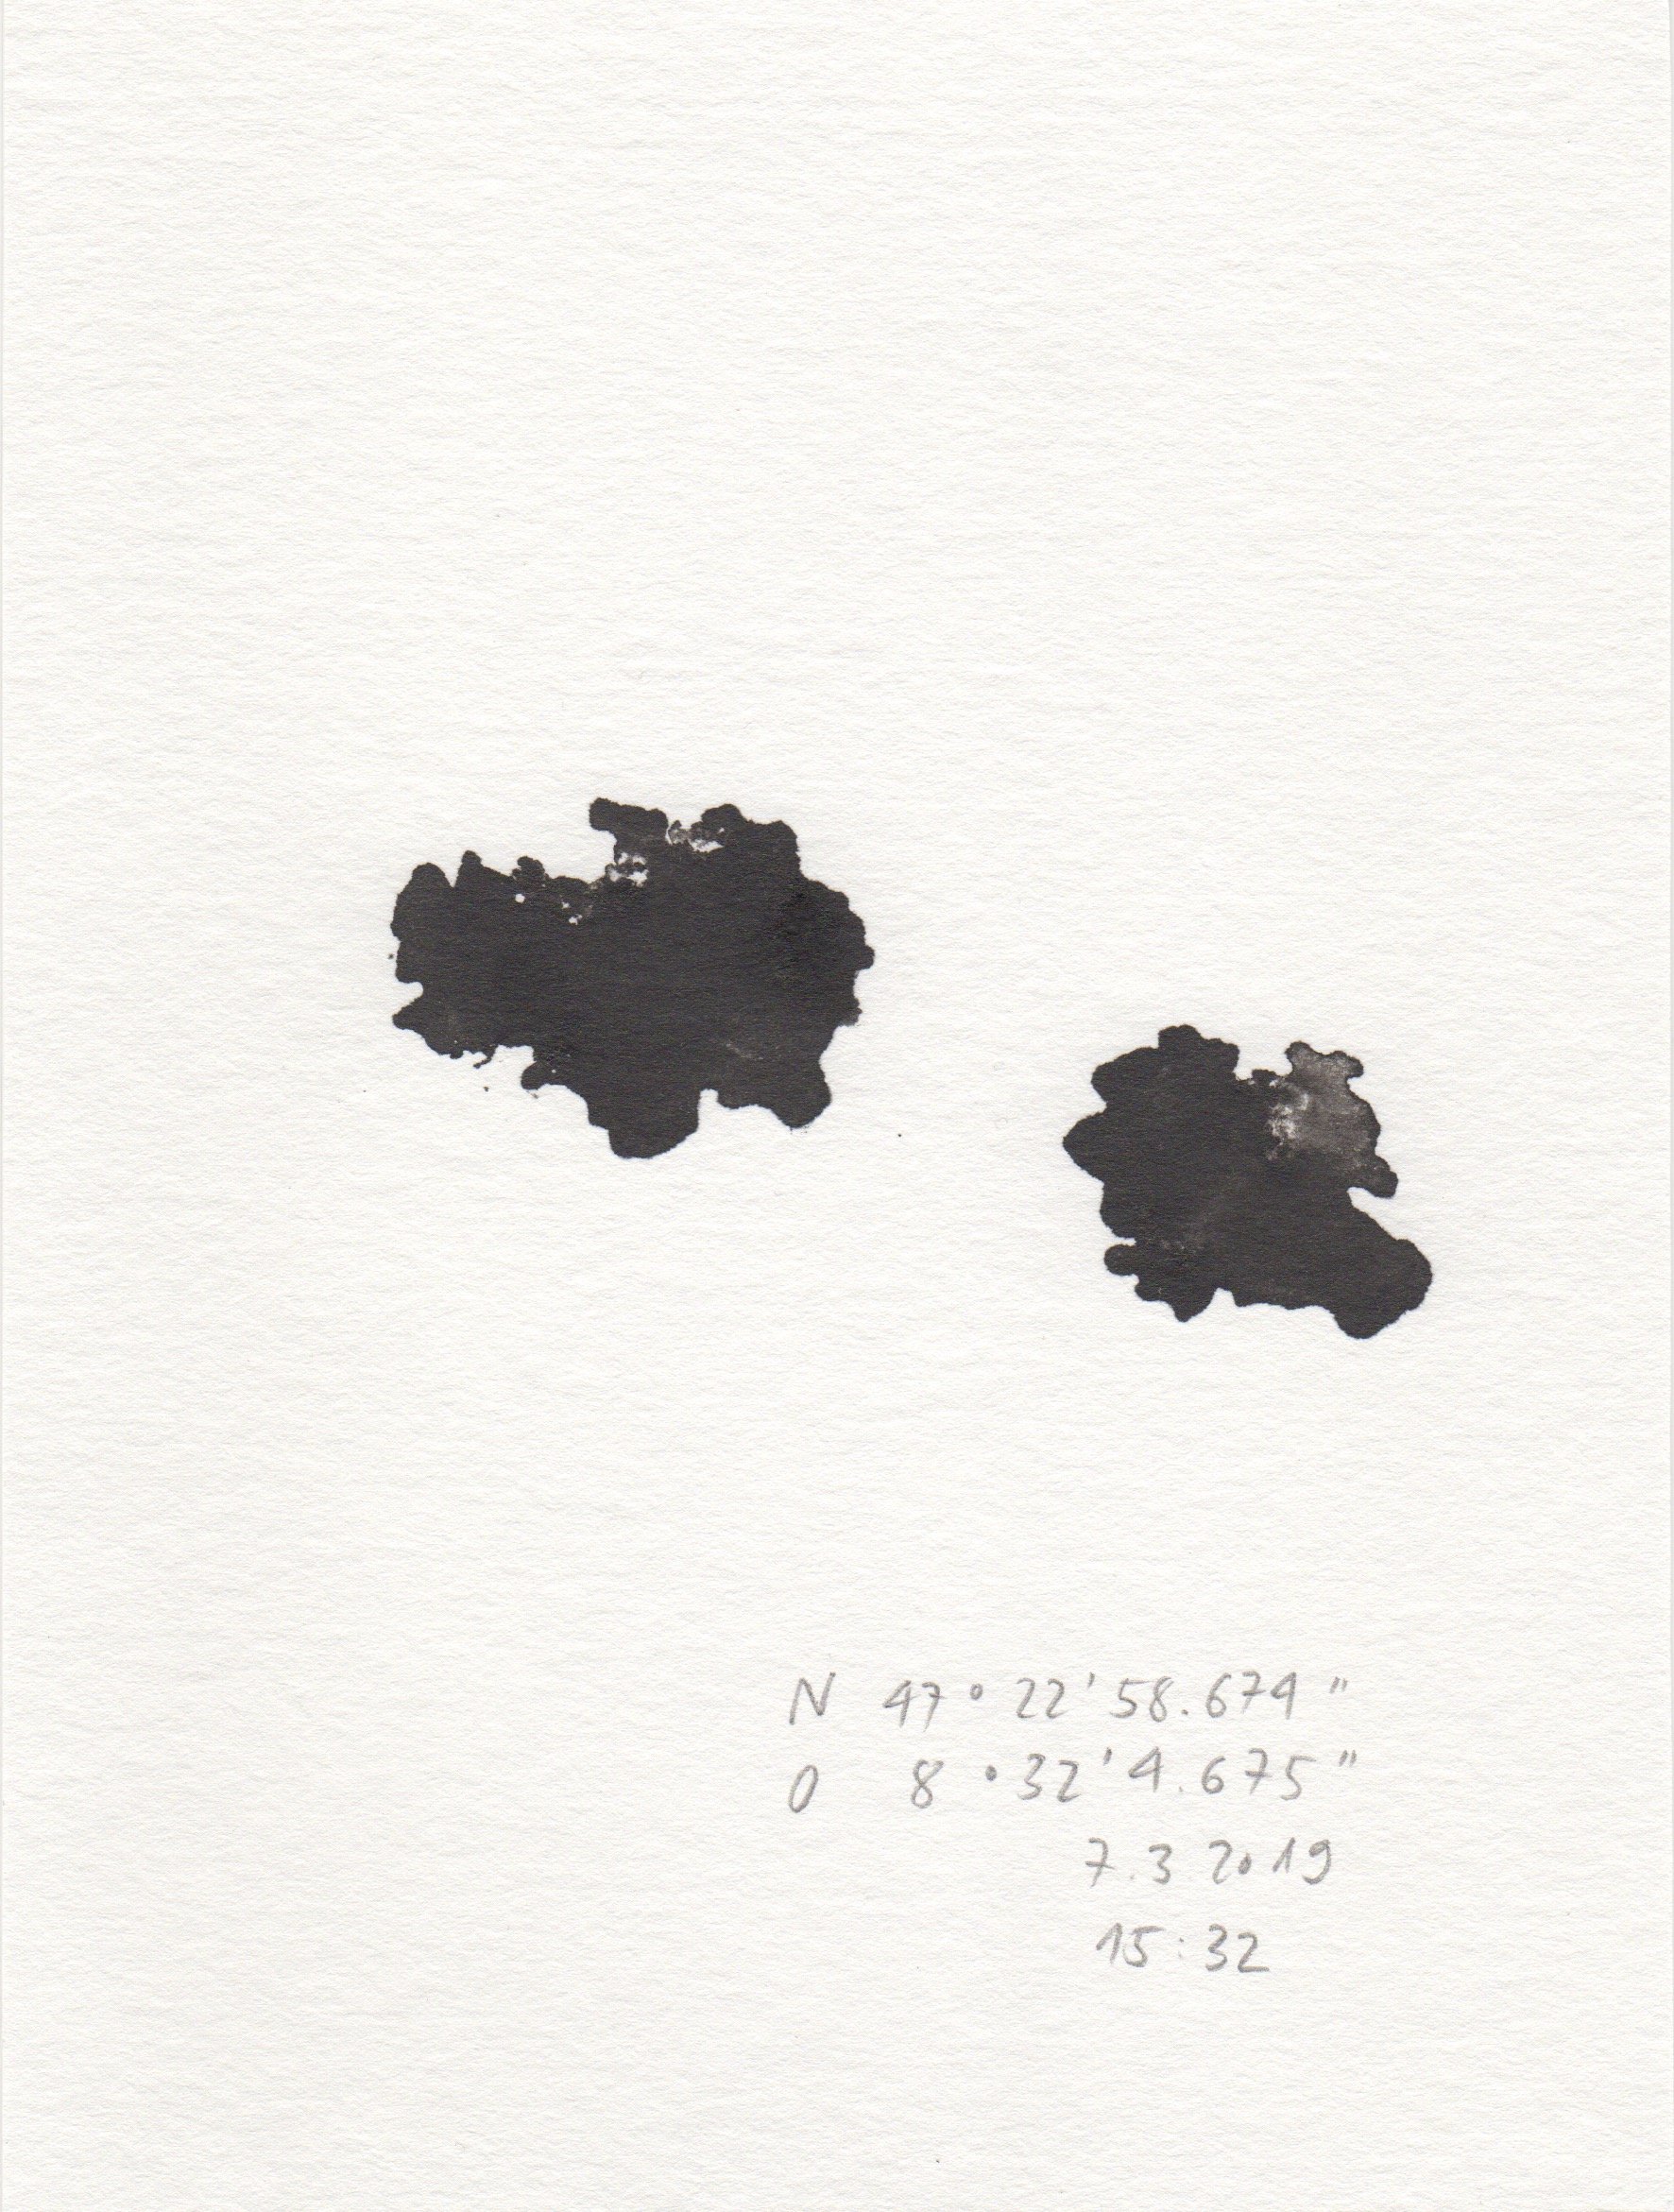 N 47° 22' 58.674"
O 8° 32' 4.675"
7.3 2019
15:32